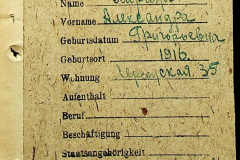 Name
Vorname Александра
Geburtsdatum Григорьевна
Geburtsort 1916.
Wohnung 35
Aufenthalt
Beruf
Beschäftigung
Staatsangehörigkeit